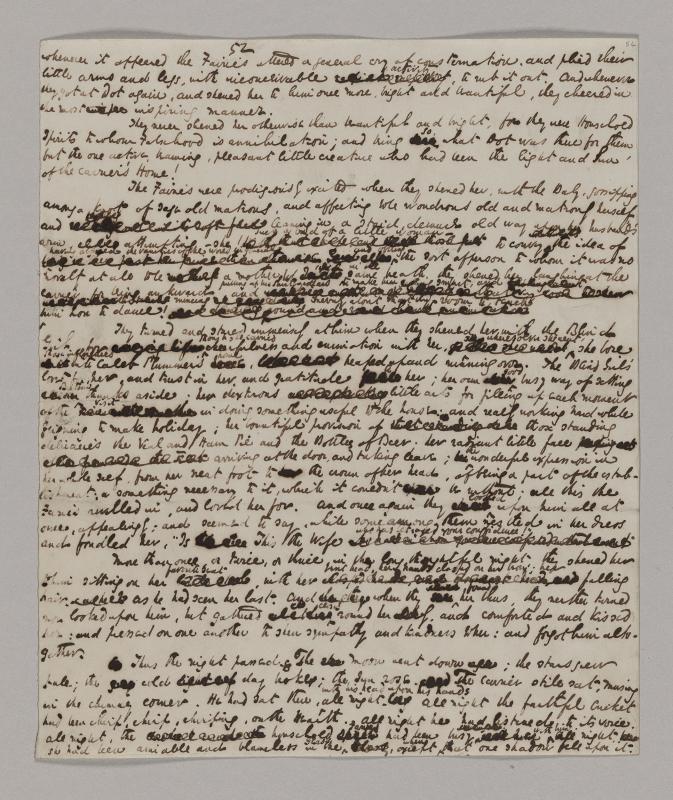 52
whenever it appeared the Fairies uttered a general cry of consternation, and plied their
little arms and legs, with inconceivable activity, to rub it out. And whenever
they got at Dot again, and shewed her to him once more, bright and beautiful, they cheered in
the most inspiring manner.
They never shewed her otherwise than beautiful and bright, for they were Household
Spirits to whom Falsehood is annihilation; and being so, what Dot was there for them
but the one active, beaming, pleasant little creature who had been the light and sun
of the Carrier's Home!
The Fairies were prodigiously excited when they shewed her, with the Baby, gossiping
among a knot of sage old matrons, and affecting to be wondrous old and matronly herself
and leaning in a staid, demure old way upon her husband's
arm, attempting - she! such a bud of a little woman - to convey the idea of
having abjured the vanities of the world in general, and being the sort of person to whom it was no
novelty at all to be a mother; yet in the same breath, they shewed her, laughing at the
Carrier for being awkward, and pulling up his shirt-collar to make him smart, and
mincing merrily about that very room to teach
him how to dance!
They turned and stared immensely at him when they shewed her with the Blind
Girl; for though she carried cheerfulness and animation with her, wheresoever she went, she bore
those influences into Caleb Plummer's home, heaped up and running over. The Blind Girl's
love for her, and trust in her, and gratitude to her; her own good busy way of setting
Bertha's thanks aside; her dexterous little arts for filling up each moment
of the visit in doing something useful to the house, and really working hard while
feigning to make holiday; her bountiful provision of those standing
delicacies the Veal and Ham Pie and the Bottles of Beer; her radiant little face
arriving at the door, and taking leave; the wonderful expression in
her whole self, from her neat foot to the crown of her head, of being a part of the estab-
lishment, a something necessary to it, which it couldn't be without; all this the
Fairies revelled in, and loved her for. And once again they looked upon him all at
once, appealingly; and seemed to say, while some among them nestled in her dress
and fondled her, "Is this the Wife who has betrayed your confidence!"
More than once, or twice, or thrice, in the long thoughtful night, they shewed her
to him sitting on her favourite seat, with her bent head, her hands clasped on her brow; her falling
hair. As he had seen her last. And when they found her thus, they neither turned
nor looked upon him, but gathered close round her, and comforted and kissed
her: and pressed on one another to shew sympathy and kindness to her: and forgot him alto-
gether.
Thus the night passed. The moon went down; the stars grew
pale; the cold day broke; the sun rose. The Carrier still sat, musing
in the chimney corner. He had sat there, with his head upon his hands, all night. All night the faithful Cricket
had been Chirp, Chirp, Chirping, on the Hearth. All night he had listened to its voice.
All night, the household Fairies had been busy with him. All night
she had been amiable and blameless in the Glass, except when that one shadow fell upon it.